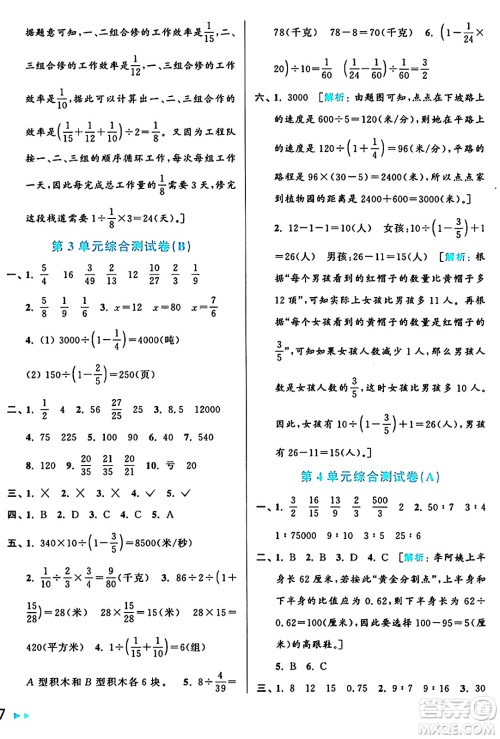 据题意可知，一、二组合修的工作效率是1/15，二、
三组合修的工作效率是1/12，一、三组合修的工作
效率是1/10，据此可知一、二、三组合作的工作效率
为(1/15+1/12+1/10)÷2=1/8，又因为工程队
按一、二、三组的顺序循环工作，每次每组工作
一天，因此每完成总工作量的1/8需要3天，修完
这段栈道需要1÷1/8×3=24(天)。]
第3单元综合测试卷(B)
一、1. 5/4 16 9/25 12 15 27/40 3/16
2. 40/49 7/30 3. x=12 x=80 x=7/9
4. (1) 3000÷(1-1/4)=4000(吨)
(2) 150÷(1-2/5)=250(页)
二、1. 1/2 2. 56 27/25 16/25 3. 8.5 12000
4. 75 225 5. 135 6. 100 7. 128
8. 140 9. 20/21 35/18 10. 21/20 亏
三、1. × 2. × 3. × 4. ✓ 5. ✓
四、1. D 2. B 3. C 4. A 5. B
五、1. 340×10÷(1-3/5)=8500(米/秒)
2. 40×1/4÷1/8=80(千克) 3. 86÷2×
(15/28÷15/28)=28(米) 28×15=
420(平方米) 4. 1÷(1/10+1/15)=6(组)
A型积木和B型积木各6块。 5. 8÷4/39=
78(千克) 78-8=70(千克) 6. 2÷(1-1/24×
20)÷10=1/60 1÷1/60=60(天)
六、1. 3000 [解析：由题图可知，点点在下坡路上
的速度是600÷5=120(米/分)，则她在平路
的速度是120×4/5=96(米/分)，平路的
路程是96×(30-5)=2400(米)，所以家到
植物园的距离是2400+600=3000(米)。]
2. 12-1-1=10(人) 女孩：10÷(1-3/5+1)
=26(人) 男孩：26-11=15(人) [解析：根
据“每个男孩看到的红帽子的数量比黄帽子多
12顶”，可知实际上女孩比男孩多11人。根据
“每个女孩看到的黄帽子的数量是红帽子的
3/5”，可知如果女孩人数减少1人，则男孩人数
是女孩人数的3/5，这时女孩比男孩多10人。
因此，女孩有10÷(1-3/5)+1=26(人)，男孩有
26-11=15(人)。]
第4单元综合测试卷(A)
一、1. 3/2 16/9 13/15 500/3 2. 50∶7 3∶4
1∶75000 9∶25 4∶9 10∶3
二、1. B 2. D 3. C 4. C [解析：李阿姨上半
身长62厘米，若按照“黄金分割点”，上半身和
下半身的比值应为0.62，则下半身长62÷
0.62=100(厘米)，所以她要选100-94=6(厘米)
的高跟鞋。]
5. B 6. A
三、1. 12 24 0.75 2. 5∶6 5∶6 3. 15
7